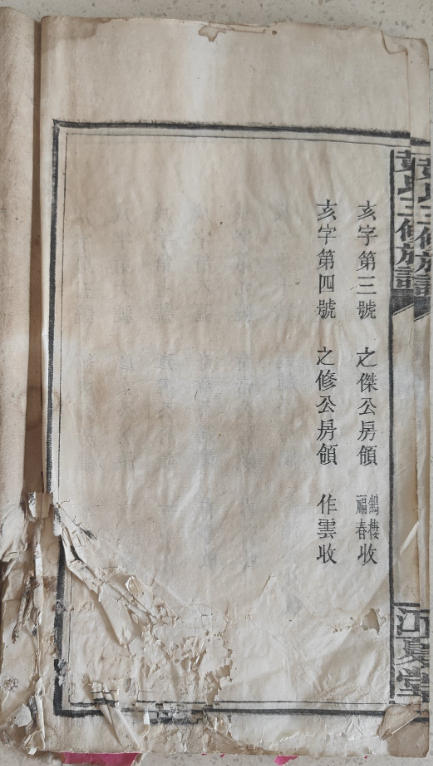 黃氏三修族譜
江夏堂
亥字第三號 之傑公房領 鶴樓 福春 收
亥字第四號 之修公房領 作雲收